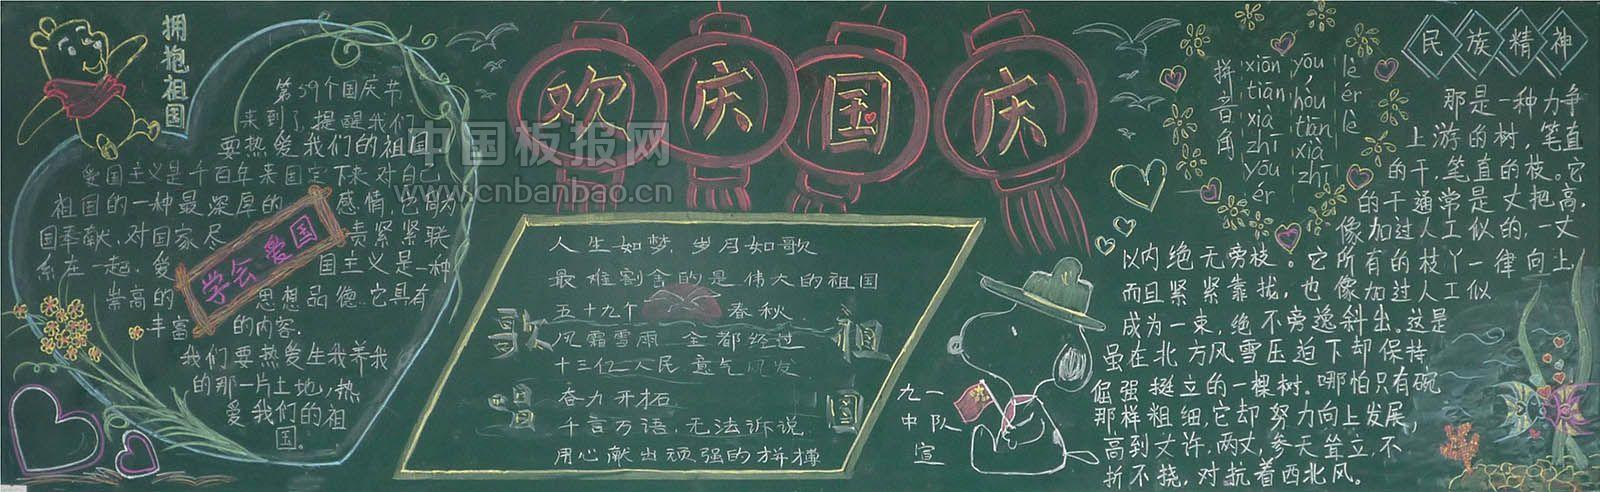 拥抱祖国
第59个国庆节
来到了提醒我们
要热爱我们的祖国
爱国主义是千百年来固定下来对自己
祖国的一种最深厚的感情,它同为
国奉献,对国家尽责紧紧联
系在一起,爱国主义是一种
崇高的思想品德.它具有
丰富的内容.
我们要热爱生我养我
的那一片土地,热
爱我们的祖
国。
学会爱国
欢庆国庆
中国板报网
www.cnbanbao.cn
歌唱祖国
人生如梦,岁月如歌
最难割舍的是伟大的祖国
五十九个春秋
风霜雪雨 全都经过
十三亿人民 意气风发
奋力开拓
千言万语,无法诉说
用心献出顽强的拼搏
九一
中队
宣
拼音角
xiān yōu lè
tiān hòu ér
xià tiān lè
zhī xià
yōu zhī
ér
民族精神
那是一种力争
上游的树,笔直
的干,笔直的枝。它
的干通常是丈把高,
像加过人工似的,一丈
以内绝无旁枝。它所有的枝丫一律向上
而且紧紧靠拢,也像加过人工似
成为一束,绝不旁逸斜出。这是
虽在北方风雪压迫下却保持
倔强挺立的一棵树.哪怕只有碗
那样粗细,它却努力向上发展,
高到丈许,两丈,参天耸立,不
折不挠,对抗着西北风。